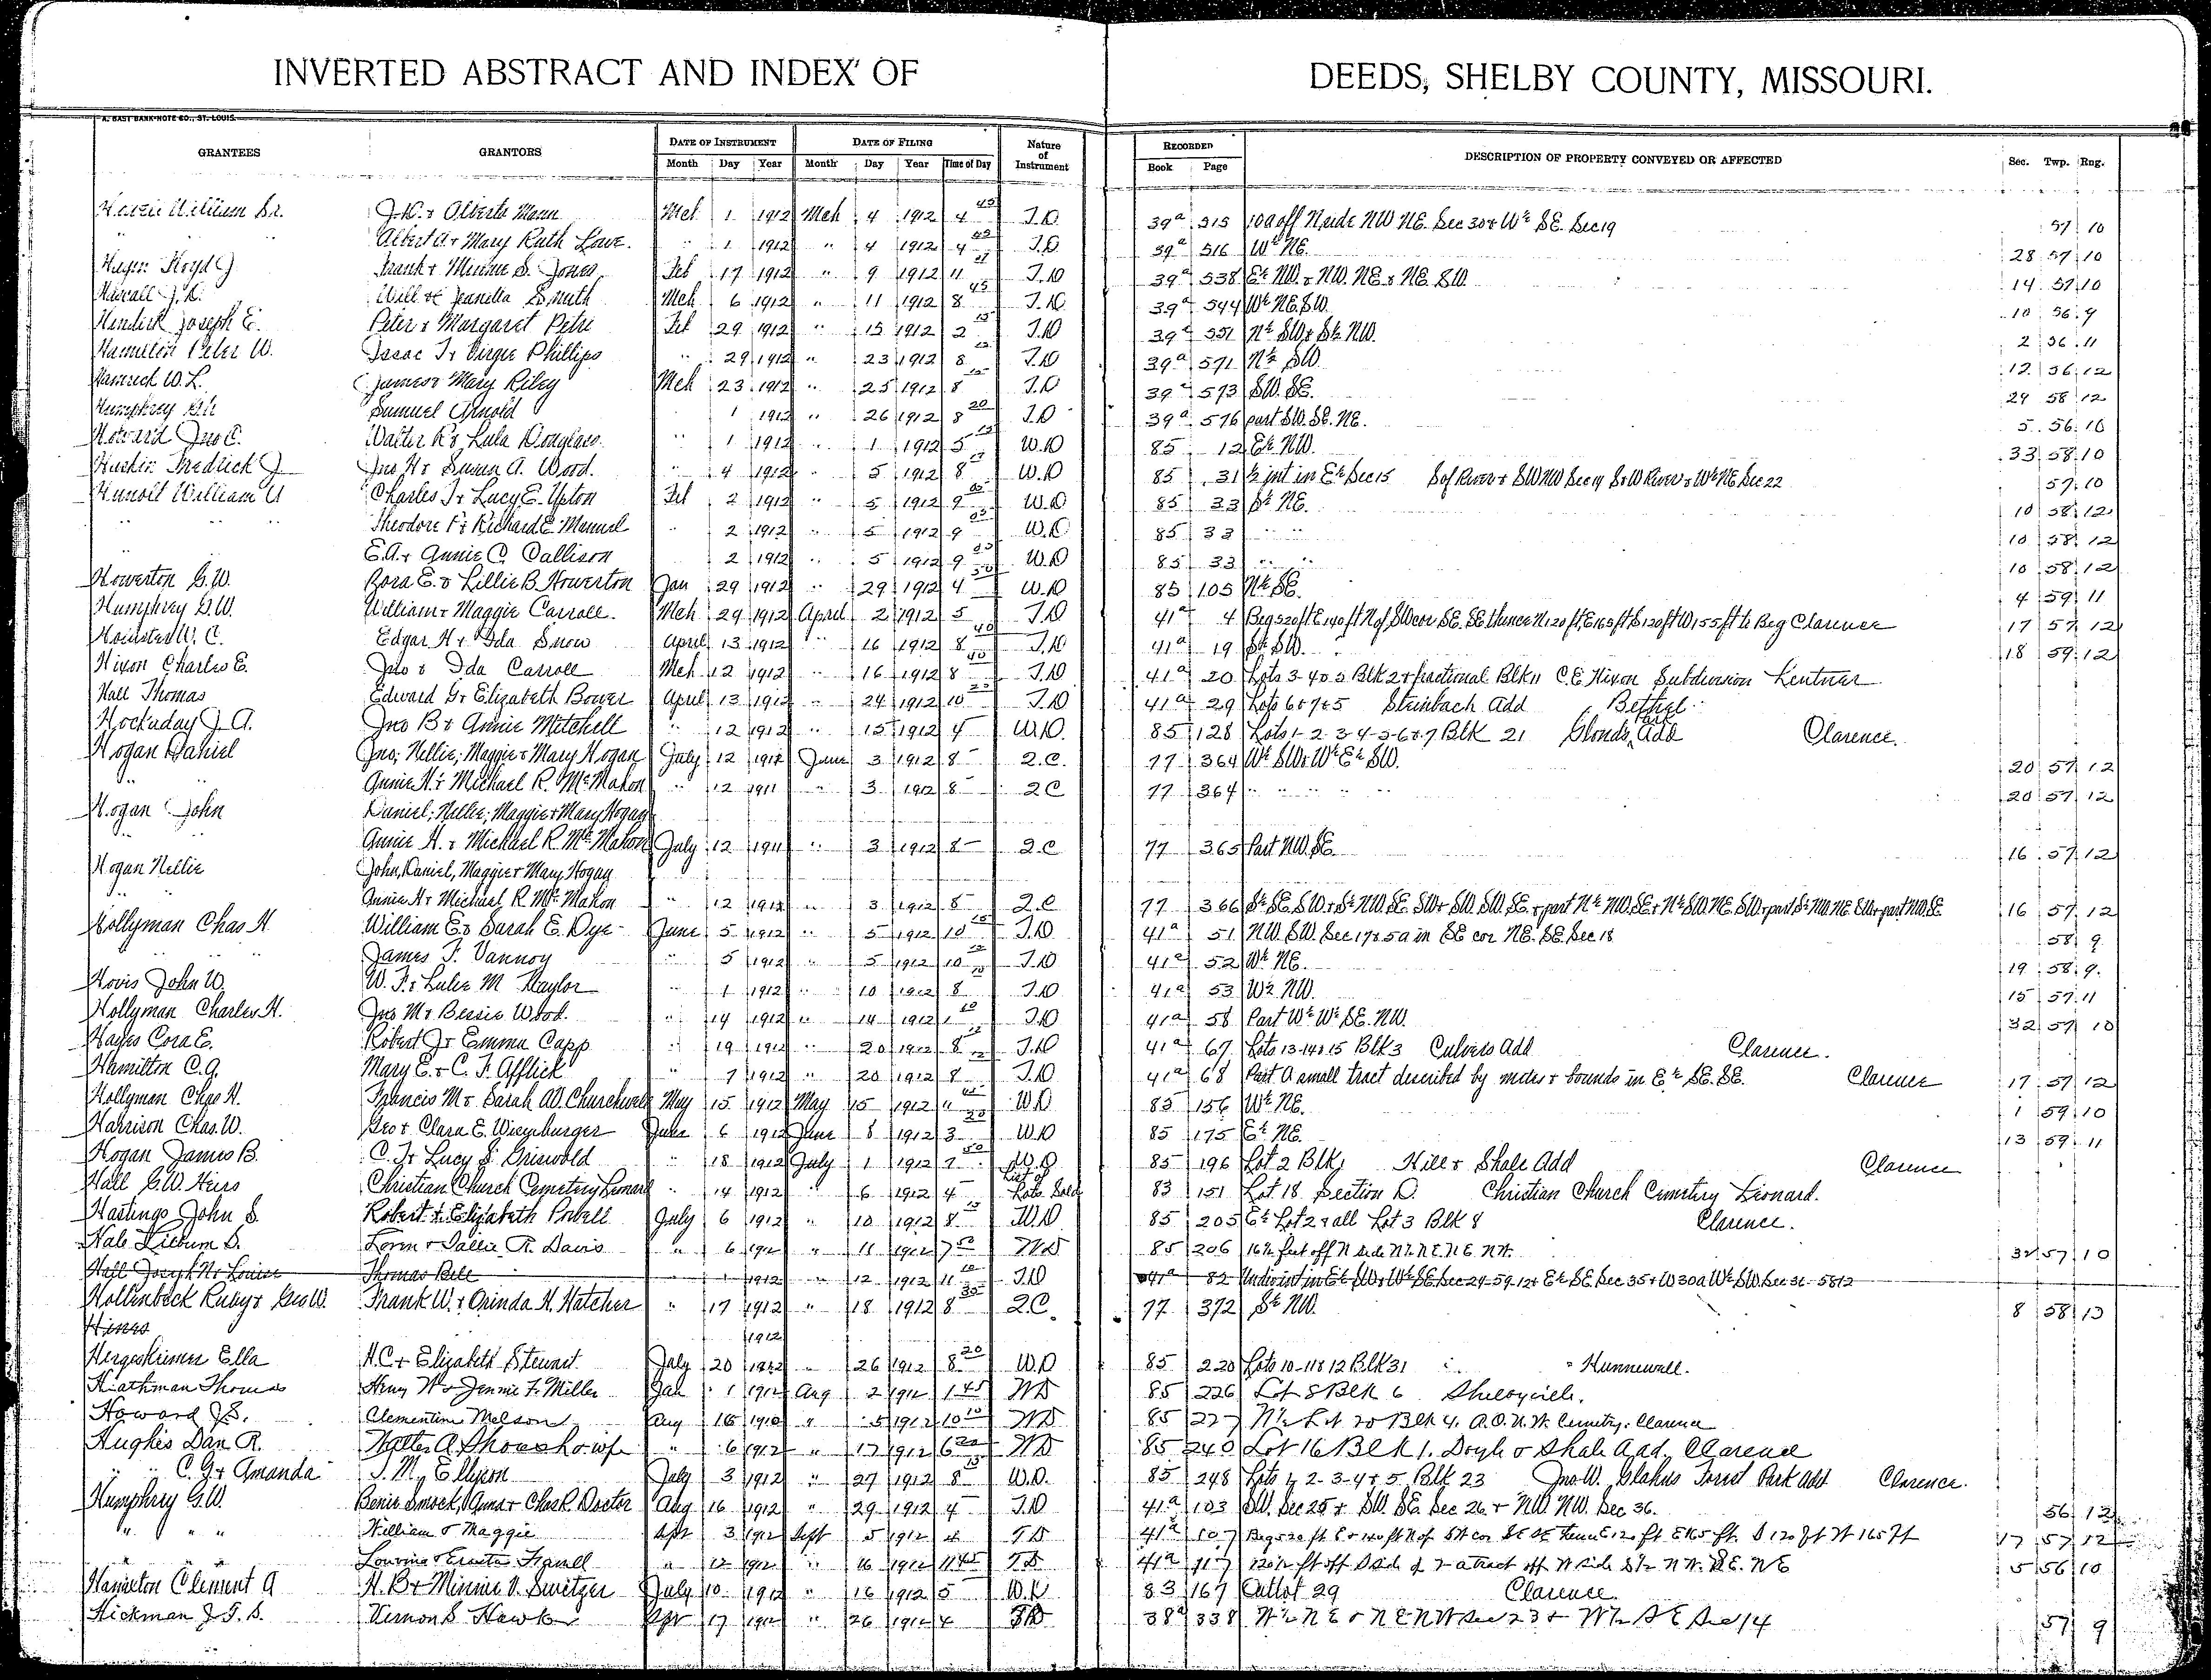 INVERTED ABSTRACT AND INDEX OF DEEDS, SHELBY COUNTY, MISSOURI.
A. GAST BANK-NOTE CO., ST. LOUIS.
GRANTEES GRANTORS DATE OF INSTRUMENT DATE OF FILING Nature of Instrument RECORDED DESCRIPTION OF PROPERTY CONVEYED OR AFFECTED Sec. Twp. Rng.
Month Day Year Month Day Year Time of Day Book Page
William Sr. J.W. & Alberta Mann Mch 1 1912 Mch 4 1912 4 45 T.D 39a 515 10a off N side NW NE. Sec 30 & W½ SE. Sec 19 57 10
" " Albert A. & Mary Ruth Love. " 1 1912 " 4 1912 4 T.D 39a 516 W½ NE. 28 57 10
Floyd J Frank & Minnie S. Jones Feb 17 1912 " 9 1912 11 T.D 39a 538 E½ NW. & NW. NE & NE. SW. 14 57 10
J. Will & Jeanetta Smith Mch 6 1912 " 11 1912 8 45 T.D 39a 544 W½ NE. SW. 10 56 9
Joseph E. Peter & Margaret Petri Feb 29 1912 " 15 1912 2 15 T.D 39a 551 N½ SW & S½ NW. 2 56 11
Hamilton Peter W. Isaac T & Virgie Phillips " 29 1912 " 23 1912 8 T.D 39a 571 N½ SW. 12 56 12
W.L. James & Mary Riley Mch 23 1912 " 25 1912 8 T.D 39a 573 SW. SE. 29 58 12
Humphrey Samuel Arnold 1 1912 " 26 1912 8 20 T.D 39a 576 part SW. SE. NE. 5 56 10
Howard Jno C. Walter R & Lula Douglass " 1 1912 " 1 1912 5 W.D 85 12 E½ NW. 33 58 10
Fredrick J Jno H & Susan A. Wood. " 4 1912 " 5 1912 8 W.D 85 31 ½ int in E½ Sec 15 S of River & SW NW Sec 14 S & W River & W½ NE Sec 22 57 10
William Charles T & Lucy E. Upton Feb 2 1912 " 5 1912 9 W.D 85 33 S½ NE. 10 58 12
" " Theodore F & Richard E Manuel " 2 1912 " 5 1912 9 W.D 85 33 " " 10 58 12
" E.A. & Annie C. Callison 2 1912 " 5 1912 9 W.D 85 33 " " 10 58 12
Howerton G.W. Rosa E. & Lillie B Howerton Jan 29 1912 " 29 1912 4 W.D 85 105 N½ SE. 4 59 11
Humphrey G.W. William & Maggie Carroll. Mch 29 1912 April 2 1912 5 T.D 41a 4 Beg 520 ft E 140 ft N of SW cor SE. SE thence N 120 ft, E 165 ft S 120 ft W 155 ft to Beg Clarence 17 57 12
W. C. Edgar H & Ida Snow April 13 1912 " 16 1912 8 40 T.D 41a 19 S½ SW. 18 59 12
Hixon Charles E. Jno & Ida Carroll Mch 12 1912 " 16 1912 8 40 T.D 41a 20 Lots 3-4 & 5 Blk 2 & fractional Blk 11 C.E Hixon Subdivision Lentner
Hall Thomas Edward G & Elizabeth Bower April 13 1912 " 24 1912 10 T.D 41a 29 Lots 6 & 7 & 5 Steinbach Add Bethel
Hockaday J. A. Jno B & Annie Mitchell " 12 1912 " 15 1912 4 W.D. 85 128 Lots 1-2-3-4-5-6 & 7 Blk 21 Park Add Clarence.
Hogan Daniel Jno; Nellie; Maggie & Mary Hogan July 12 1911 June 3 1912 8 Q.C. 77 364 W½ SW & W½ E½ SW. 20 57 12
" " Annie H & Michael R. McMahon " 12 1911 " 3 1912 8 Q.C 77 364 " " " " 20 57 12
Hogan John Daniel; Nellie; Maggie & Mary Hogan
" " Annie H. & Michael R. McMahon July 12 1911 " 3 1912 8 Q.C 77 365 Part NW. SE. 16 57 12
Hogan Nellie John, Daniel, Maggie & Mary Hogan
" " Annie H & Michael R. McMahon " 12 1911 " 3 1912 8 Q.C 77 366 S½ SE. SW. & S½ NW. SE. SW & SW. SW. SE. & part N½ NW. SE & N½ SW. NE. SW & part S½ NW. NE. SW & part NW. SE. 16 57 12
Hollyman Chas H William E & Sarah E. Dye June 5 1912 " 5 1912 10 T.D 41a 51 NW. SW. Sec 17 & 5a in SE cor NE. SE. Sec 18 58 9
" " James T. Vannoy " 5 1912 " 5 1912 10 T.D 41a 52 W½ NE. 19 58 9.
Hovis John W. W. F. & Lulie M Naylor " 1 1912 " 10 1912 8 T.D 41a 53 W½ NW. 15 57 11
Hollyman Charles H. Jno M & Bessie Wood. " 14 1912 " 14 1912 1 T.D 41a 58 Part W½ W½ SE. NW. 32 57 10
Hayes Cora E. Robert J & Emma Capp " 19 1912 " 20 1912 8 T.D 41a 67 Lots 13-14 & 15 Blk 3 Culvers Add Clarence.
Hamilton C.A. Mary E. & C. F. Afflick " 7 1912 " 20 1912 8 T.D 41a 68 Part A small tract described by metes & bounds in E½ SE. SE. Clarence 17 57 12
Hollyman Chas H. Francis M & Sarah W. Churchwell May 15 1912 May 15 1912 11 W.D 85 156 W½ NE. 1 59 10
Harrison Chas. W. Geo & Clara E. Wiemburger June 6 1912 June 8 1912 3 W.D 85 175 E½ NE. 13 59 11
Hogan James B. C. F & Lucy S. Griswold " 18 1912 July 1 1912 7 W.D 85 196 Lot 2 Blk 1 Hill & Shale Add Clarence
Hall G.W. Heirs Christian Church Cemetery Leonard " 14 1912 " 6 1912 4 List of Lots Sold 83 151 Lot 18 Section D. Christian Church Cemetery Leonard.
Hastings John S. Robert & Elizabeth Powell July 6 1912 " 10 1912 8 W.D 85 205 E½ Lot 2 & all Lot 3 Blk 8 Clarence.
Hale S. Loren & Sallie R. Davis " 6 1912 " 11 1912 7 50 W.D 85 206 16½ feet off N side N½ NE. NE. NW. 32 57 10
Hall Joseph N & Louisa Thomas Bell 1 1912 " 12 1912 11 T.D 41a 82 Undiv int in E½ SW & W½ SE. Sec 24-59-12 & E½ SE. Sec 35 & W 30a W½ SW. Sec 36-58 12
Hollenbeck Ruby & Geo W. Frank W. & Orinda H. Hatcher " 17 1912 " 18 1912 8 35 Q.C. 77 372 S½ NW. 8 58 13
Hines 1912
Ella H.C & Elizabeth Stewart July 20 1912 " 26 1912 8 20 W.D 85 220 Lots 10-11 & 12 Blk 31 " Hunnewell.
Thomas Henry W & Jennie F. Miller Jan 1 1912 Aug 2 1912 1 45 W.D 85 226 Lot 8 Blk 6 Shelbyville.
Howard J.S. Clementine Melson Aug 16 1910 " 5 1912 10 10 W.D 85 227 N½ Lot 20 Blk 4. A.O.U.W. Cemetry. Clarence
Hughes Dan R. Walter A. Shouse & wife " 6 1912 " 17 1912 6 20 W.D 85 240 Lot 16 Blk 1. Doyle & Shale Add. Clarence
" " C. G. & Amanda J. M. Ellison July 3 1912 " 27 1912 8 15 W.D. 85 248 Lots 1, 2-3-4 & 5 Blk 23 Jno. W. Glahns Forest Park Add Clarence.
Humphrey G.W. Smock, & Chas R. Doctor Aug 16 1912 " 29 1912 4 T.D 41a 103 SW. Sec 25 & SW. SE. Sec 26 & NW. NW. Sec 36. 56 12
" " " William & Maggie Apr 3 1912 Sept 5 1912 4 T.D 41a 107 Beg 520 ft. E & 140 ft N of SW cor SE SE Thence 120 ft E 165 ft. S 120 ft W 165 ft 17 57 12
" 12 1912 " 16 1912 11 45 T.D 41a 117 5 56 10
Hamilton Clement A H. B & Minnie V. Switzer July 10 1912 " 16 1912 5 W.D 83 167 Outlot 29 Clarence.
Hickman J.T.S. Vernon S. Hawk Apr 17 1912 " 26 1912 4 T.D 38a 338 W½ NE & NE NW Sec 23 & W½ SE Sec 14 57 9